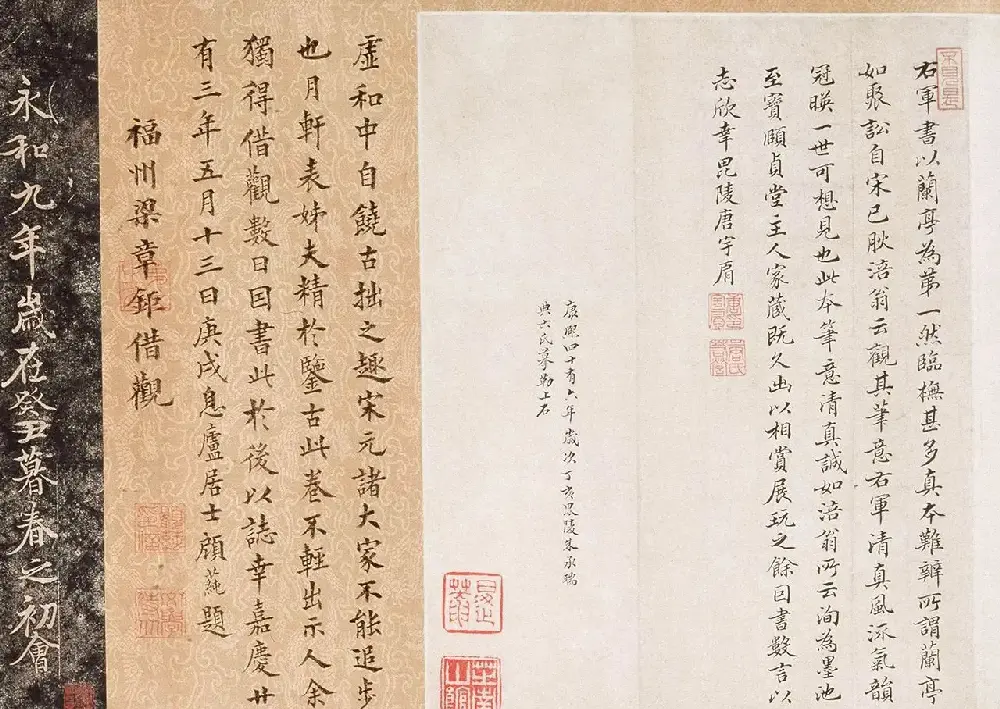 右軍書以蘭亭為第一然臨橅甚多真本難辯所謂蘭亭
如聚訟自宋已肰涪翁云觀其筆意右軍清真風流氣韻
冠暎一世可想見也此本筆意清真誠如涪翁所云洵為墨池
至寶頤貞堂主人家藏既久出以相賞展玩之餘因書數言以
志欣幸毘陵唐宇肩
康熙四十有六年歲次丁亥毘陵朱永瑞
典六氏摹勒上石
虛和中自饒古拙之趣宋元諸大家不能追步
也月軒表姊夫精於鑒古此卷不輕出示人余
獨得借觀數日因書此於後以誌幸嘉慶廿
有三年五月十三日庚戌息廬居士顧蒓題
福州梁章鉅借觀
永和九年歲在癸丑暮春之初會